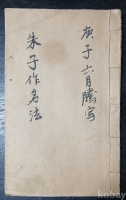 庚子六月謄写
朱子作名法